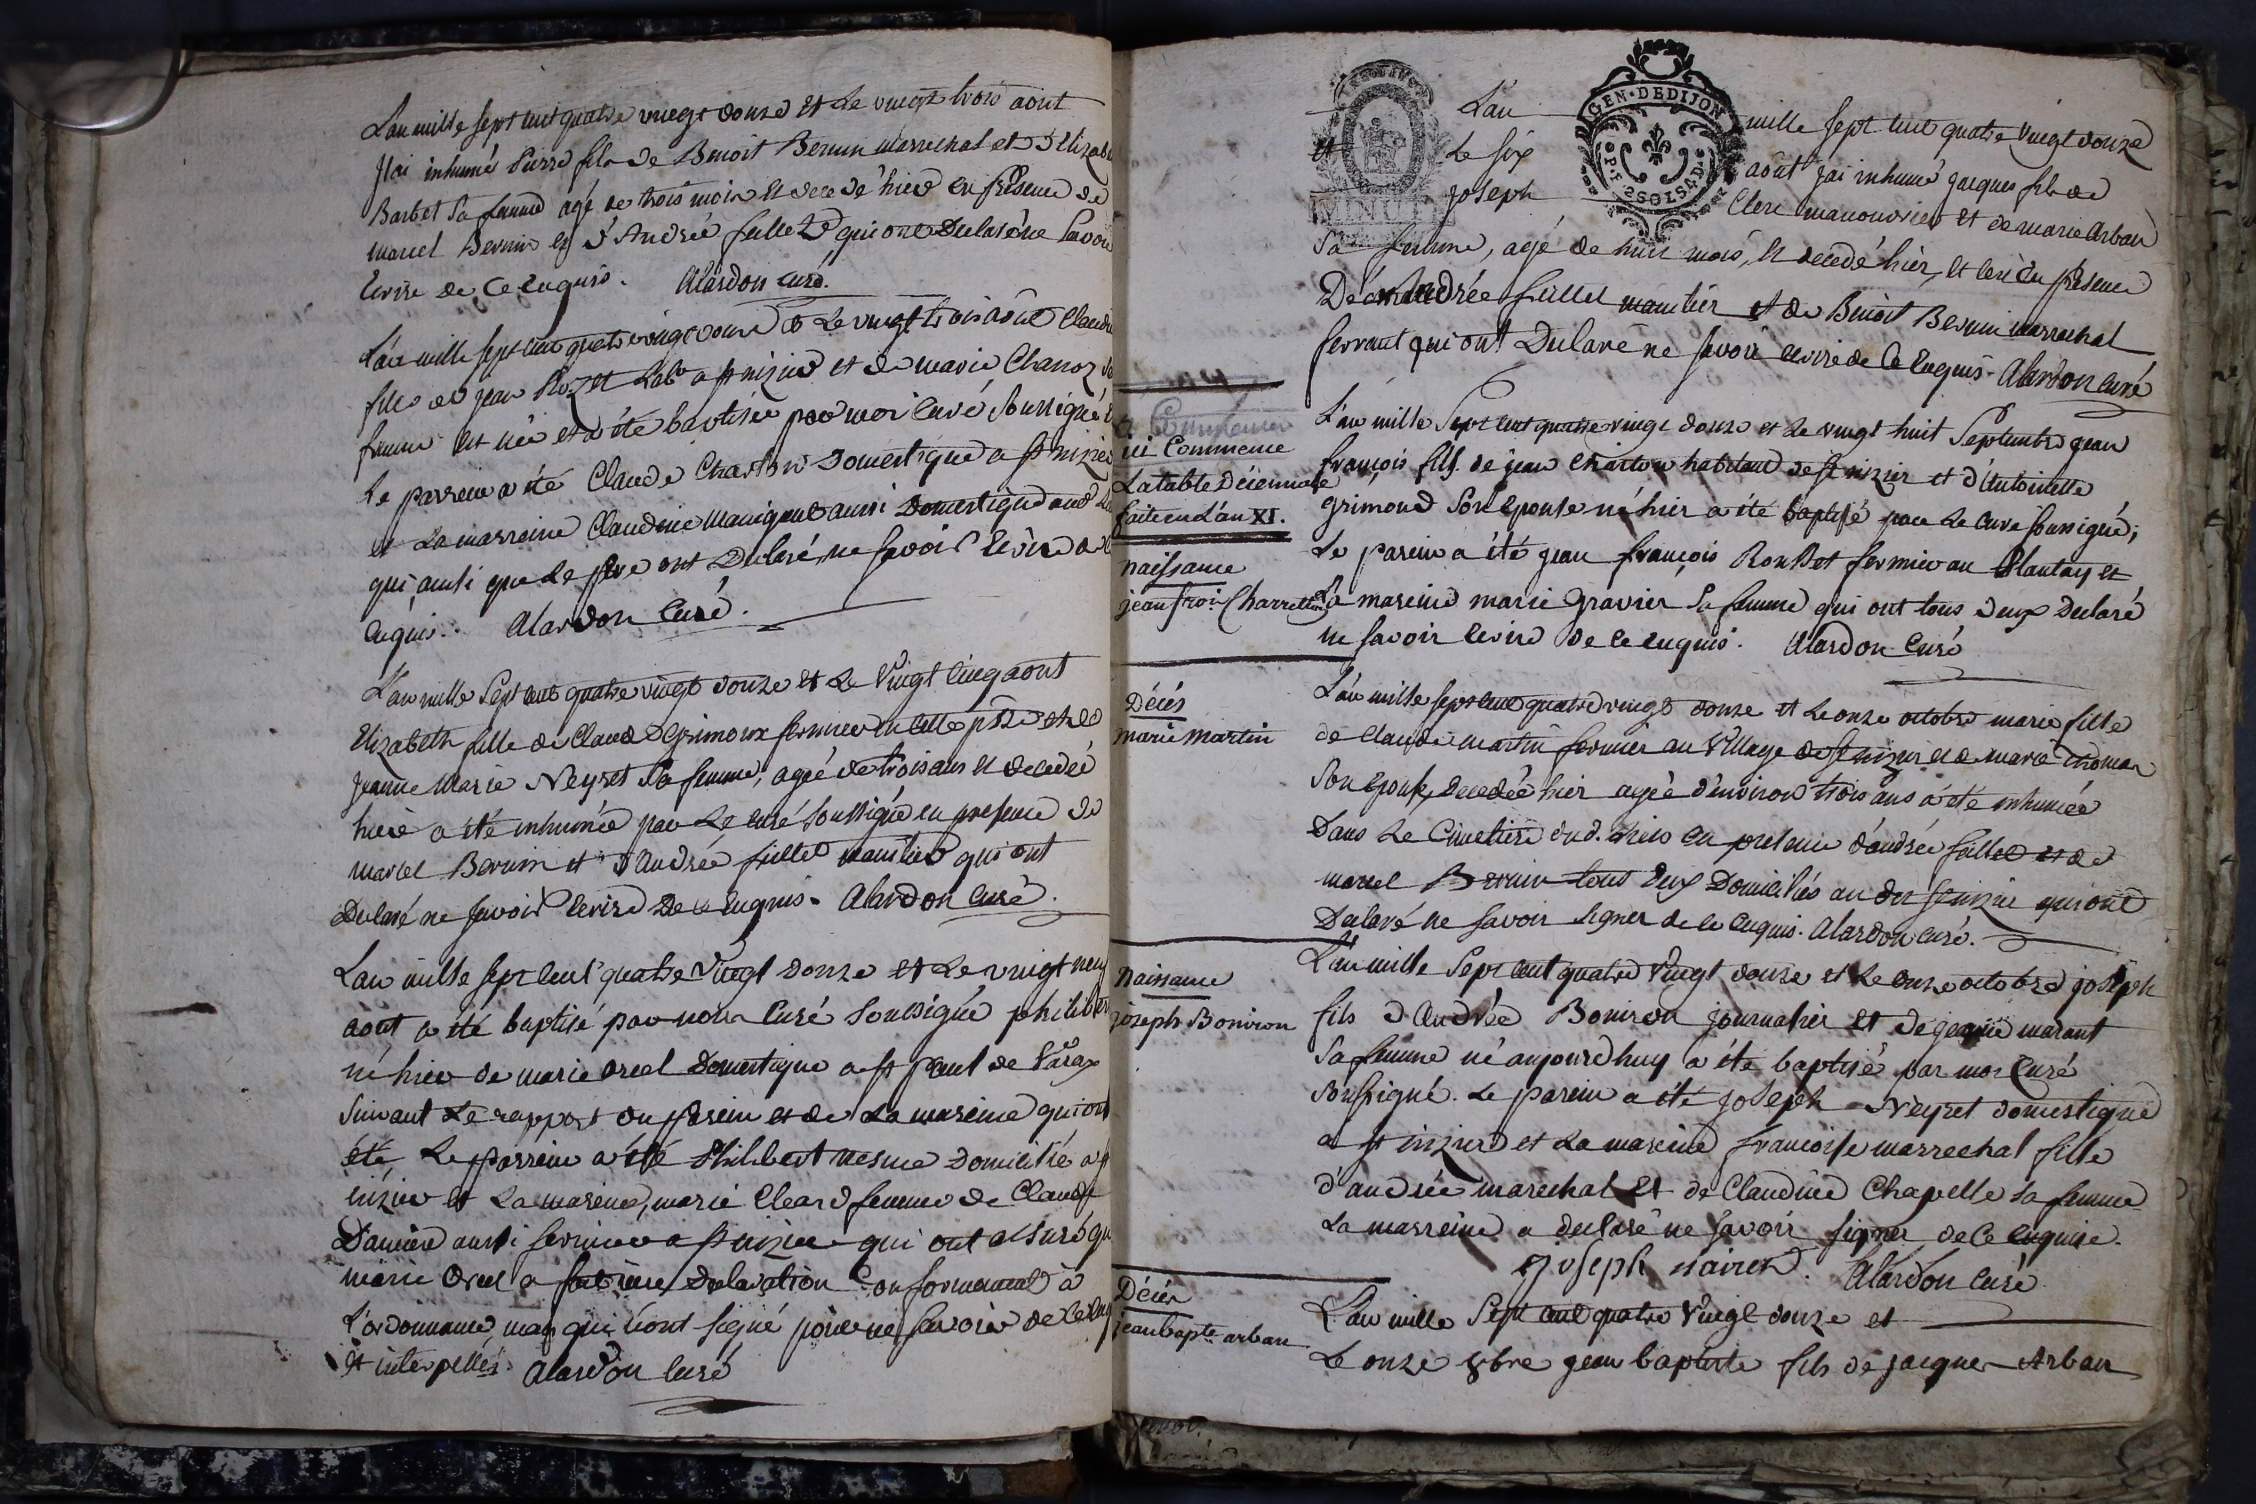 L'an mille sept cent quatre vingt douze et le vingt trois aout
J'ai inhumé Pierre fils de Benoit Bernin marrechal et d'Elizab
Barbet sa femme agé de trois mois et decedé hier en presence de
marcel Bernin et d'André fillet qui ont declaré ne savoir
écrire de ce enquis. Alardon curé.
L'an mille sept cent quatre vingt douze et le vingt trois août Claud
fille de jean Rozet lab. a st nizier et de marie Chanoz sa
femme est née et a été baptisée par moi curé soussigné
le parrein a été Claude Charton domestique a st nizier
et la marreine Claudine Manigant aussi domestique aud
qui ainsi que le père ont declaré ne savoir écrire de ce
enquis. Alardon curé.
L'an mille sept cent quatre vingt douze et le vingt cinq aout
Elizabeth fille de Claude Grimoux fermier en cette psse et de
jeanne Marie Neyret sa femme, agée de trois ans et decedée
hier a été inhumée par le curé soussigné en presence de
marcel Bernin et d'André fillet manilier qui ont
declaré ne savoir écrire de ce enquis. Alardon curé.
L'an mille sept cent quatre vingt douze et le vingt neuf
aout a été baptisé par nous curé soussigné philibert
né hier de marie orcel domestique a st paul de Varax
suivant le rapport du parein et de la mareine qui ont
été, le parrein a été Philibert mesme domicilié a st
nizier et la mareine, marie Cleard femme de Claude
Daniere aussi fermier a st nizier qui ont assuré que
marie Orcel a fait declaration conformement à
l'ordonnance, mais qui n'ont signé pour ne savoir de ce enq
et interpellés. Alardon curé
GEN. DE DIJON
P.P. 2 SOLS 4 D.
MINUT
L'an mille sept cent quatre vingt douze
et le six août j'ai inhumé jacques fils de
joseph Clerc manouvrier et de marie Arban
sa femme, agé de huit mois, et decedé hier, et ceci en presence
D'Andrée fillet manilier et de Benoit Bernin marrechal
ferrant qui ont declaré ne savoir ecrire de ce enquis. Alardon curé
ici Commence
La table Décennale
faite en l'an XI.
naissance
jean froi. Charreton
L'an mille sept cent quatre vingt douze et le vingt huit Septembre jean
françois fils de jean Charton habitant de st nizier et d'Antoinette
grimond son épouse né hier a été baptisé par le curé soussigné;
le parein a été jean françois Rousset fermier au Plantay et
la mareine marie Gravier sa femme qui ont tous deux declaré
ne savoir ecrire de ce enquis. Alardon curé
Décés
marie martin
L'an mille sept cent quatre vingt douze et le onze octobre marie fille
de Claude martin fermier au village de st nizier et de marie thomas
son epouse, decedée hier agée d'environ trois ans a été inhumée
dans le Cimetiere dud. lieu en presence d'andrée fillet et de
marcel Bernin tous deux domiciliés au dit st nizier qui ont
Declaré ne savoir signer de ce enquis. Alardon curé.
naissance
joseph Boniron
L'an mille sept cent quatre vingt douze et le onze octobre joseph
fils d'andrée Boniron journalier et de jeanne marant
sa femme né aujourdhuy a été baptisé par moi curé
soussigné. Le parein a été joseph Neyret domestique
a st nizier et la mareine françoise marrechal fille
d'andrée marechal et de Claudine Chapelle sa femme
la marreine a declaré ne savoir signer de ce enquise.
joseph nairet. Alardon curé
Décés
jean bapte arban
L'an mille sept cent quatre vingt douze et
le onze 8bre jean baptiste fils de jacques Arban